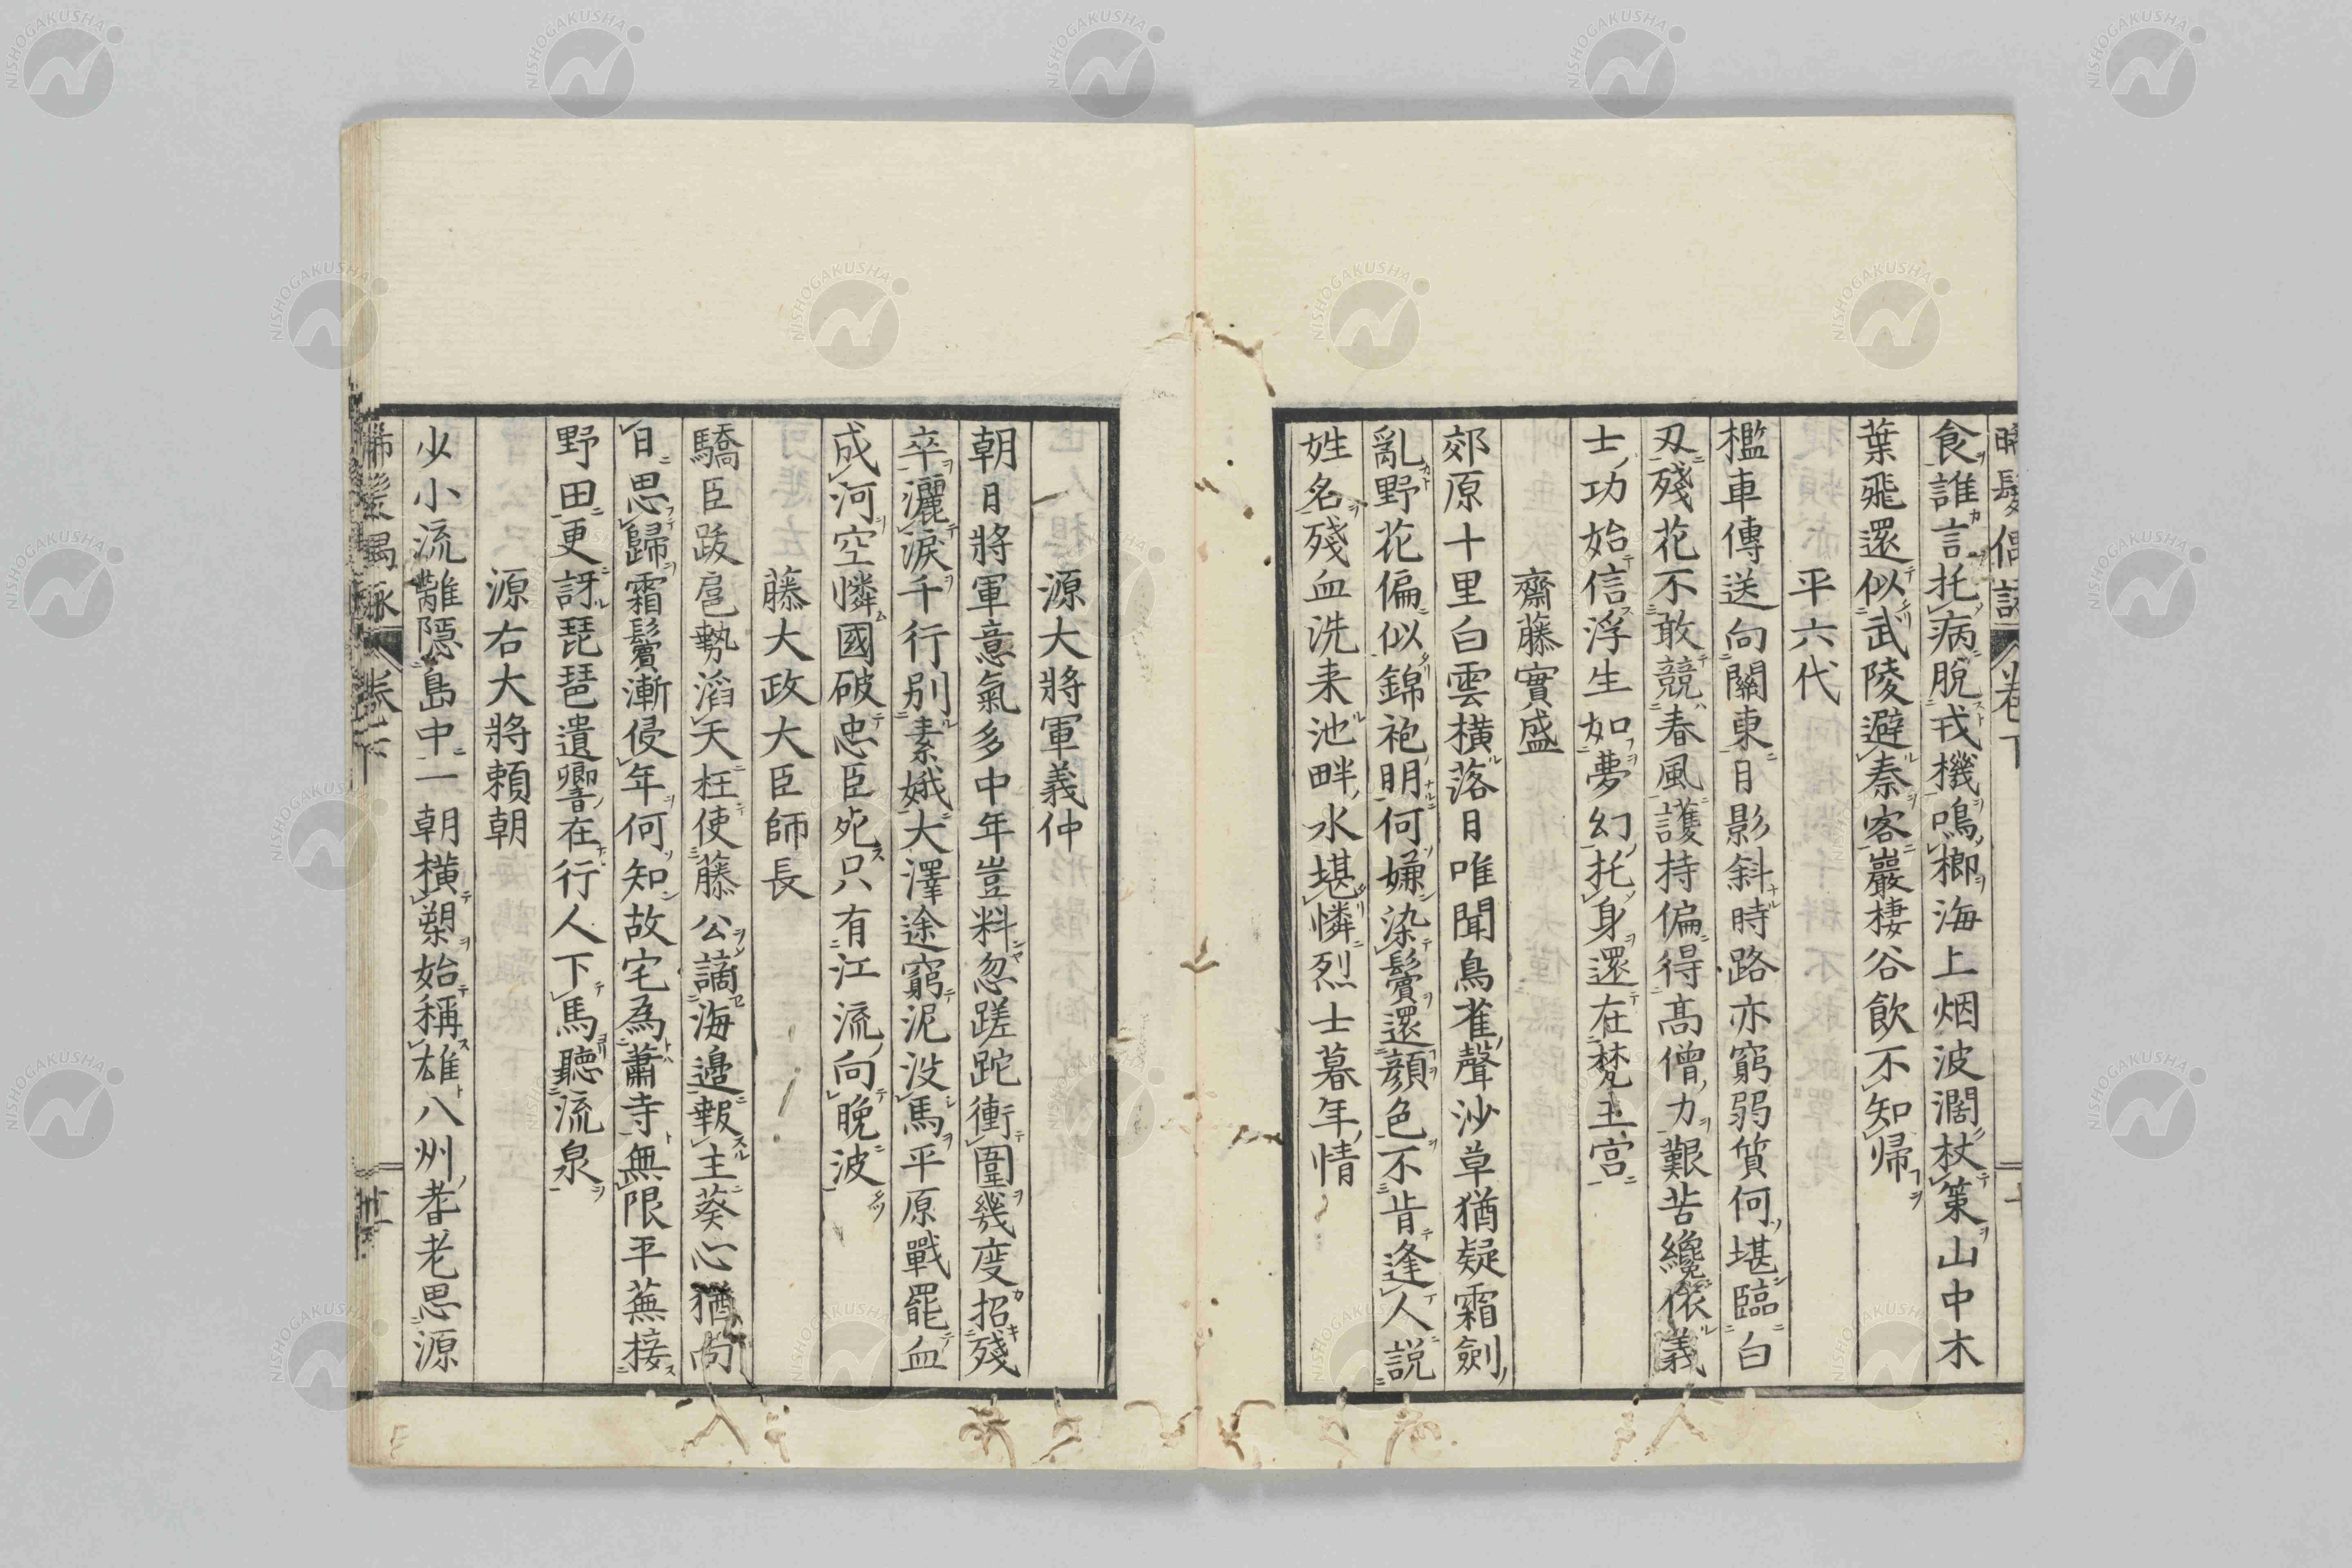 晞髮偶詠 卷下
食誰言托病脫戎機鳴榔海上烟波濶杖策山中木
葉飛還似武陵避秦客巖棲谷飲不知帰
平六代
檻車傳送向關東日影斜時路亦窮弱質何堪臨白
刄殘花不敢競春風護持偏得髙僧力艱苦纔依義
士功始信浮生如夢幻托身還在梵王宮
齋藤實盛
郊原十里白雲横落日唯聞鳥雀聲沙草猶疑霜劍
亂野花偏似錦袍明何嫌染鬢還顔色不肯逢人説
姓名殘血洗来池畔水堪憐烈士暮年情
源大將軍義仲
朝日將軍意氣多中年豈料忽蹉跎衝圍幾度招殘
卒灑淚千行別素娥大澤途窮泥没馬平原戰罷血
成河空憐國破忠臣死只有江流向晚波
藤大政大臣師長
驕臣跋扈勢滔天枉使藤公謫海邉報主葵心猶向
日思歸霜鬢漸侵年何知故宅為蕭寺無限平蕪接
野田更訝琵琶遺響在行人下馬聽流泉
源右大將頼朝
少小流離隠島中一朝横槊始稱雄八州耆老思源
晞髮偶詠 卷下
NISHOGAKUSHA